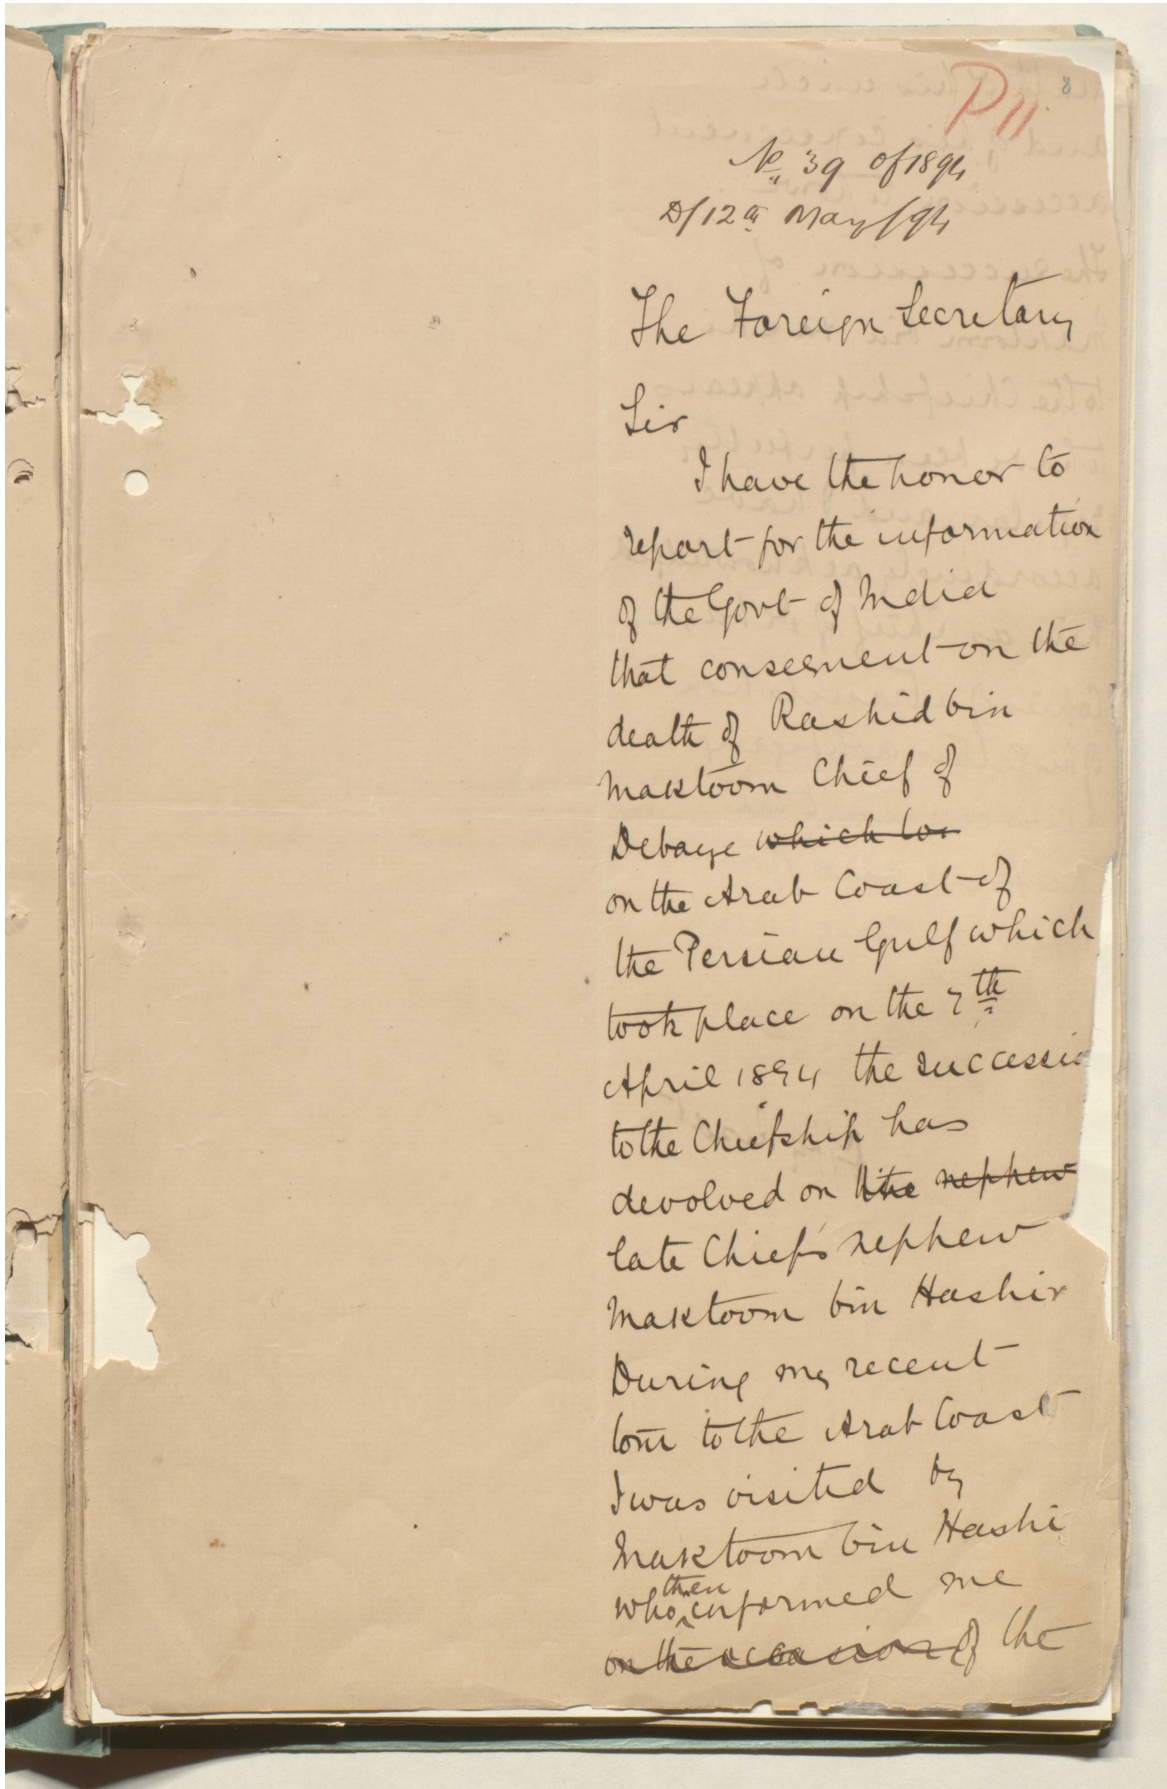 P11
8
No. 39 of 1894
D/12th May/94
The Foreign Secretary
Sir
I have the honor to
report for the information
of the Govt of India
that consequent on the
death of Rashid bin
Maktoom Chief of
Debaye which loc
on the Arab Coast of
the Persian Gulf which
took place on the 7th
April 1894 the successio
to the Chiefship has
devolved on the nephew
late Chief's nephew
Maktoom bin Hashir
During my recent
tour to the Arab Coast
I was visited by
Maktoom bin Hashi
who then informed me
on the occasion of the